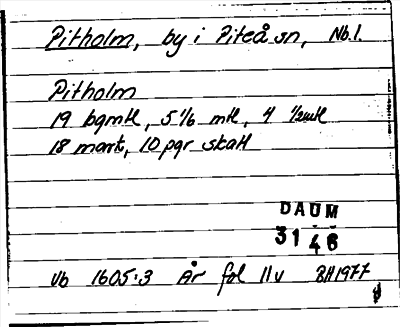 Pitholm, by i Piteå sn, Nb.l.
Pitholm
19 bgmtl, 5 1/6 mtl, 4 1/2mtl
18 mark, 10 pgr skatt
DAUM
3146
Vb 1605:3 År fol 11v BH1977